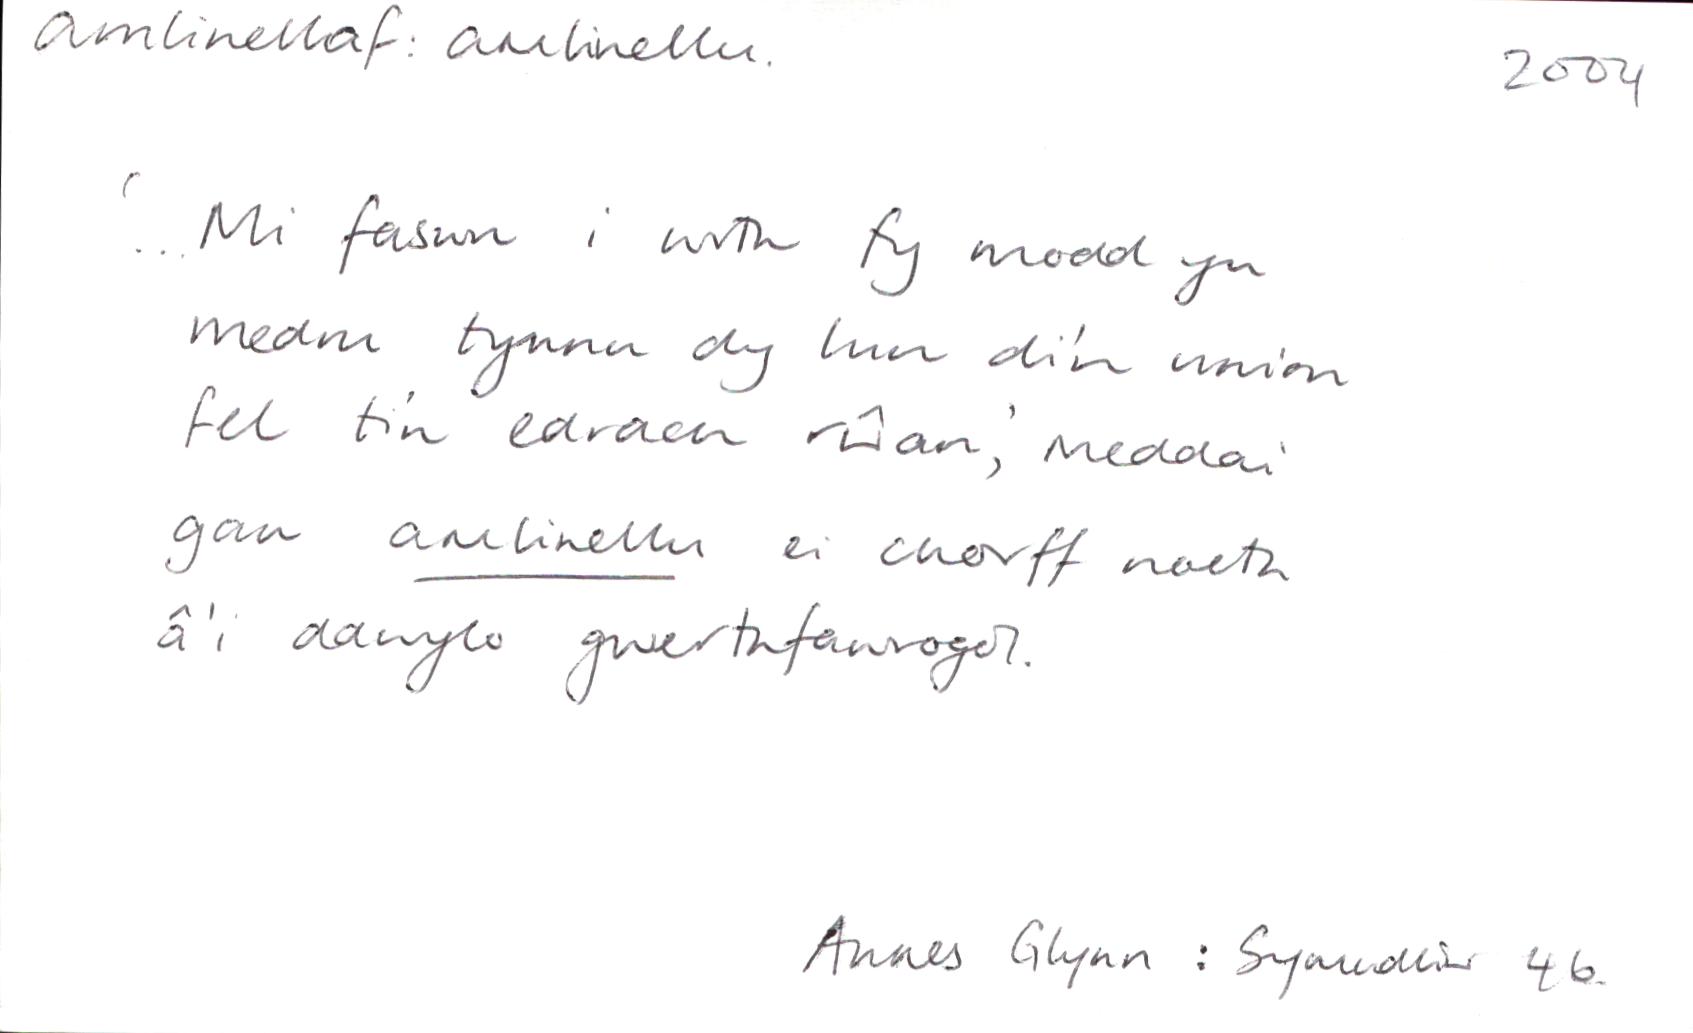 amlinellaf: amlinellu.
2004
'... Mi faswn i wrth fy modd yn
medru tynnu dy lun di'n union
fel ti'n edrach rŵan,' meddai
gan amlinellu ei chorff noeth
â'i ddwylo gwerthfawrogol.
Annes Glynn : Symudliw 46.